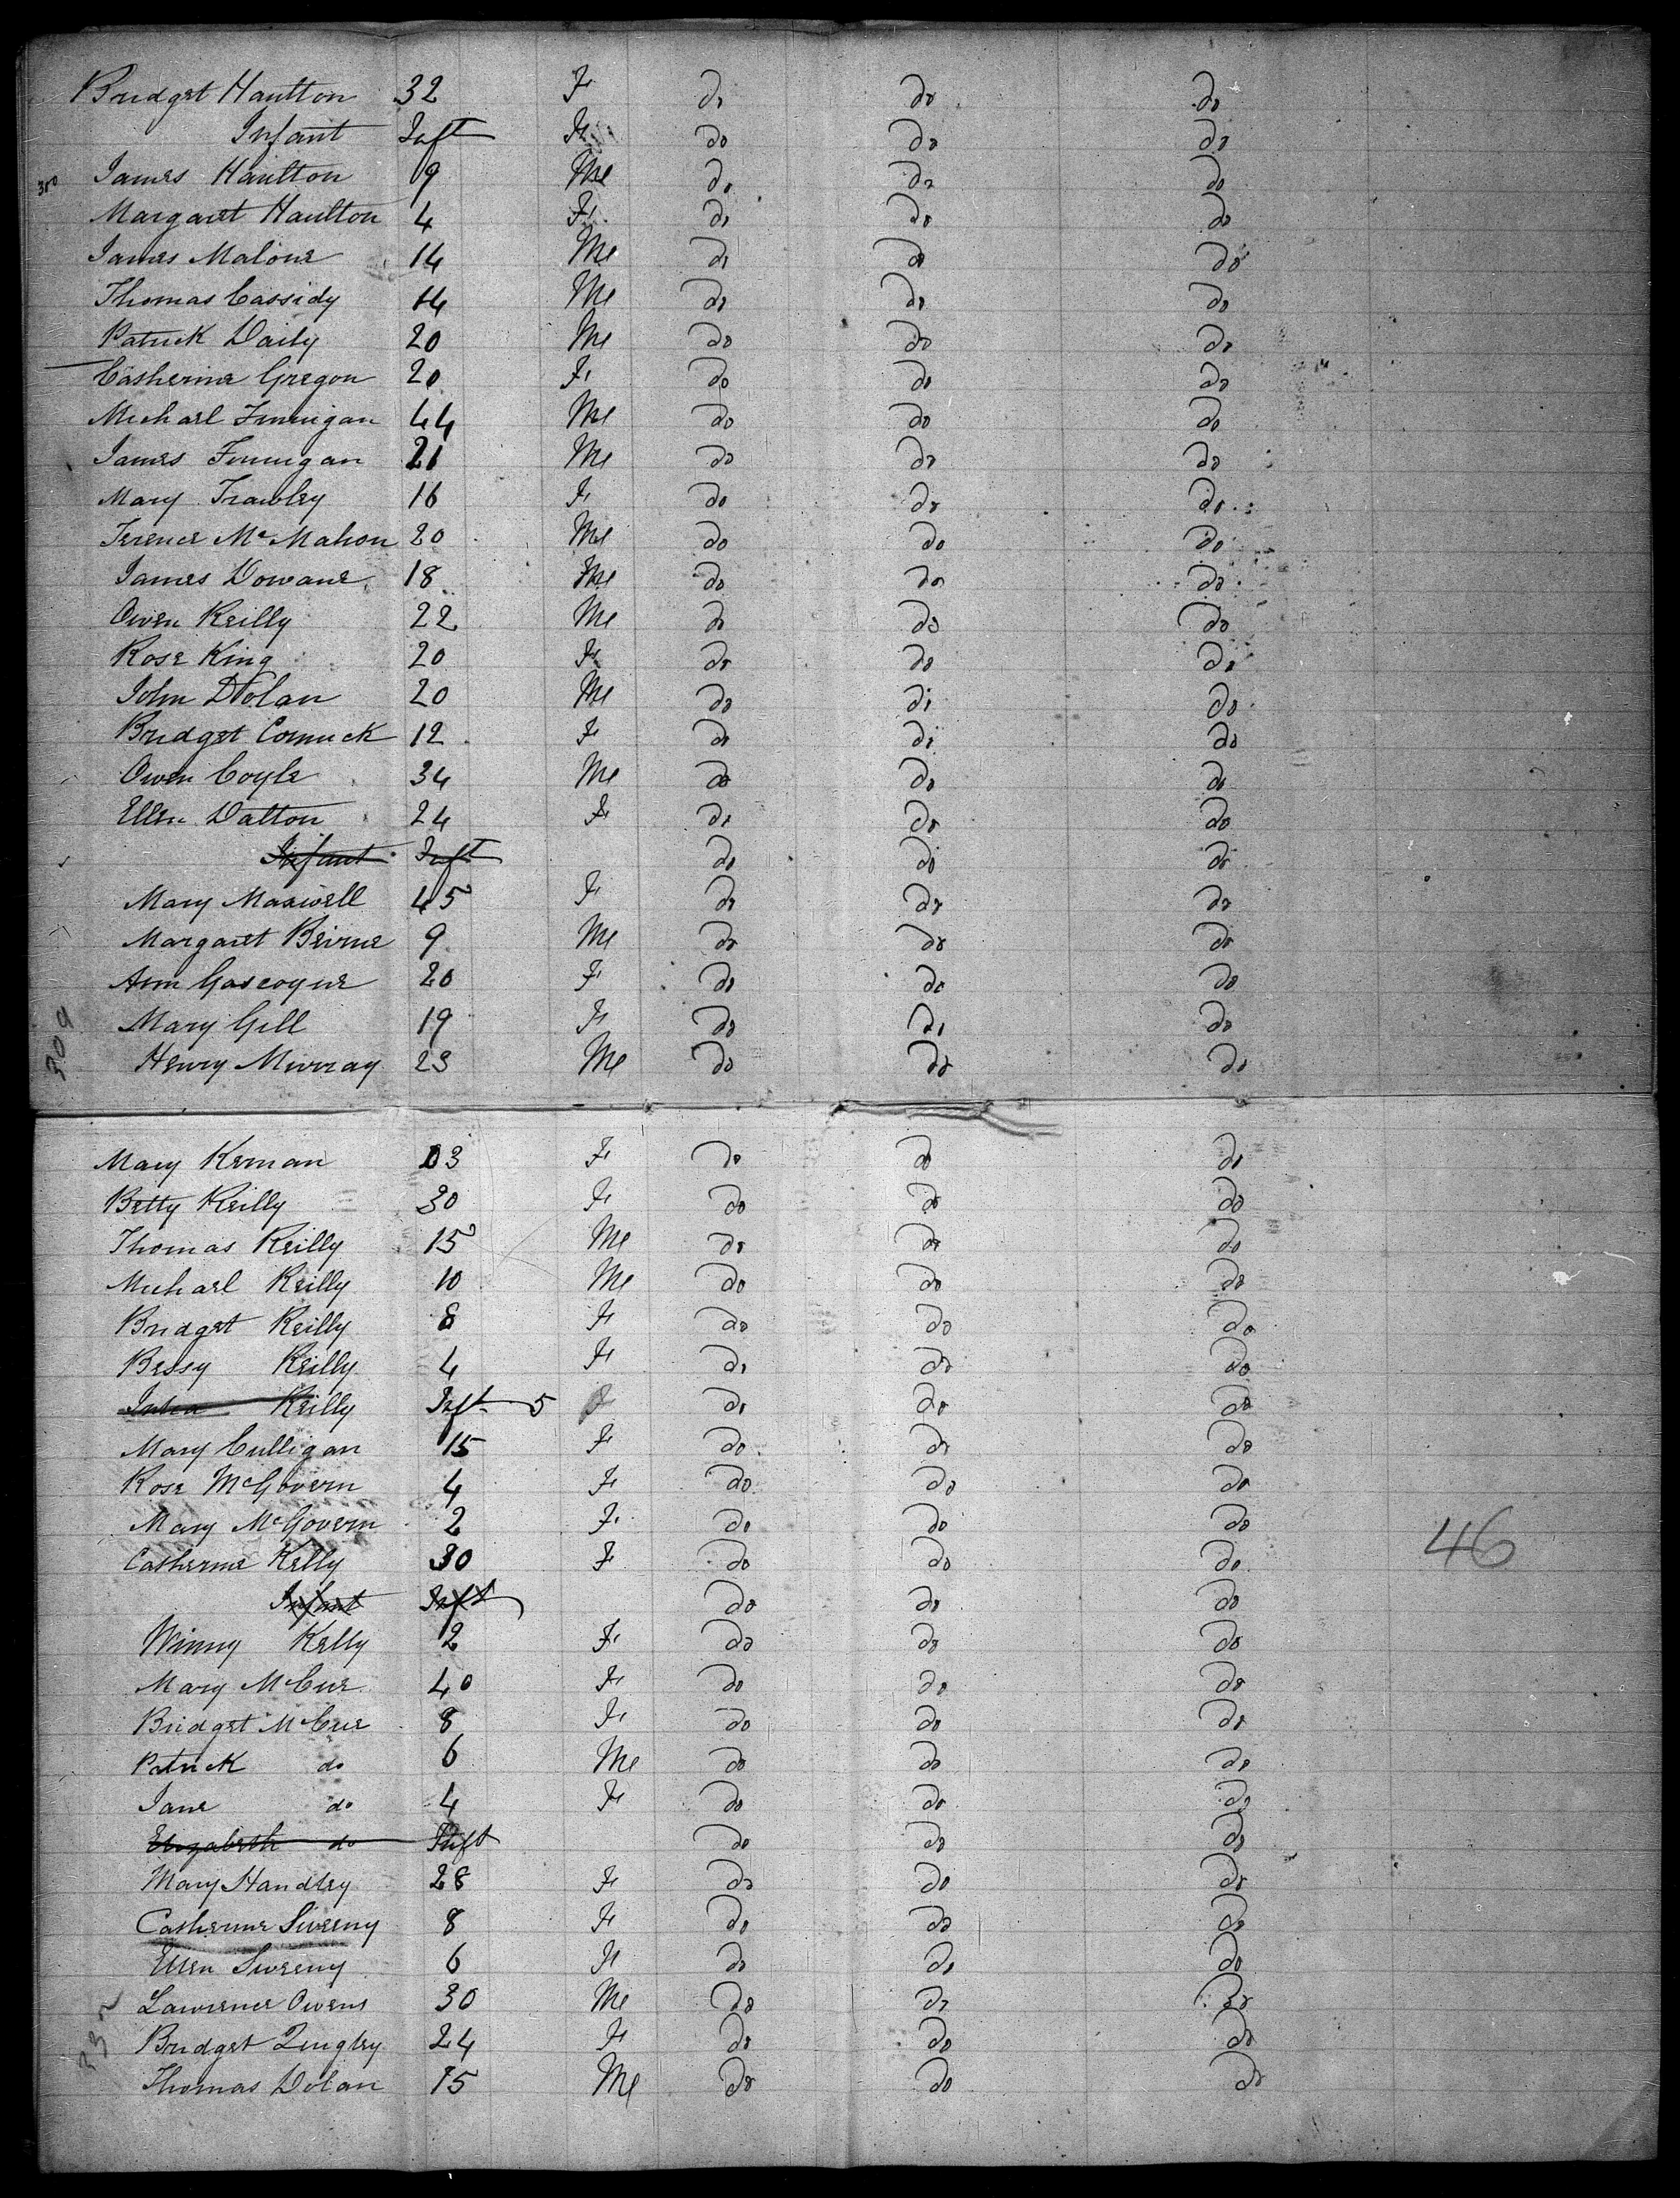 Bridget Haulton 32 F do do do
Infant Inft F do do do
350 James Haulton 9 Me do do do
Margaret Haulton 4 F do do do
James Malone 14 Me do do do
Thomas Cassidy 14 Me do do do
Patrick Daily 20 Me do do do
Catherine Gregon 20 F do do do
Michael Finnigan 44 Me do do do
James Finnigan 21 Me do do do
Mary Frawley 16 F do do do
Terence McMahon 20 Me do do do
James Dowane 18 Me do do do
Owen Reilly 22 Me do do do
Rose King 20 F do do do
John Dolan 20 Me do do do
Bridget Cormick 12 F do do do
Owen Coyle 34 Me do do do
Ellen Dalton 24 F do do do
Infant Inft do do do
Mary Maxwell 45 F do do do
Margaret Beirne 9 Me do do do
Ann Gascoyne 20 F do do do
Mary Gill 19 F do do do
309
Henry Murray 23 Me do do do
Mary Kernan 23 F do do do
Betty Reilly 30 F do do do
Thomas Reilly 15 Me do do do
Michael Reilly 10 Me do do do
Bridget Reilly 8 F do do do
Bessy Reilly 4 F do do do
Reilly Inft 5 do do do
Mary Culligan 15 F do do do
Rose McGovern 4 F do do do
Mary McGovern 2 F do do do
46
Catherine Kelly 30 F do do do
Infant Inft do do do
Winny Kelly 2 F do do do
Mary McCue 40 F do do do
Bridget McCue 8 F do do do
Patrick do 6 Me do do do
Jane do 4 F do do do
Elizabeth do Inft do do do
Mary Handley 28 F do do do
Catherine Sweeny 8 F do do do
Ellen Sweeny 6 F do do do
Lawrence Owens 30 Me do do do
Bridget 24 F do do do
Thomas Dolan 15 Me do do do